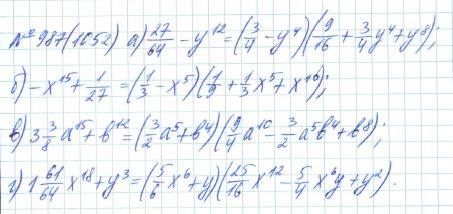 № 987(1052) а) 27/64 - y¹² = (3/4 - y⁴)(9/16 + 3/4 y⁴ + y⁸);
б) - x¹⁵ + 1/27 = (1/3 - x⁵)(1/9 + 1/3 x⁵ + x¹⁰);
в) 3 3/8 a¹⁵ + b¹² = (3/2 a⁵ + b⁴)(9/4 a¹⁰ - 3/2 a⁵b⁴ + b⁸);
г) 1 61/64 x¹⁸ + y³ = (5/6 x⁶ + y)(25/16 x¹² - 5/4 x⁶y + y²).